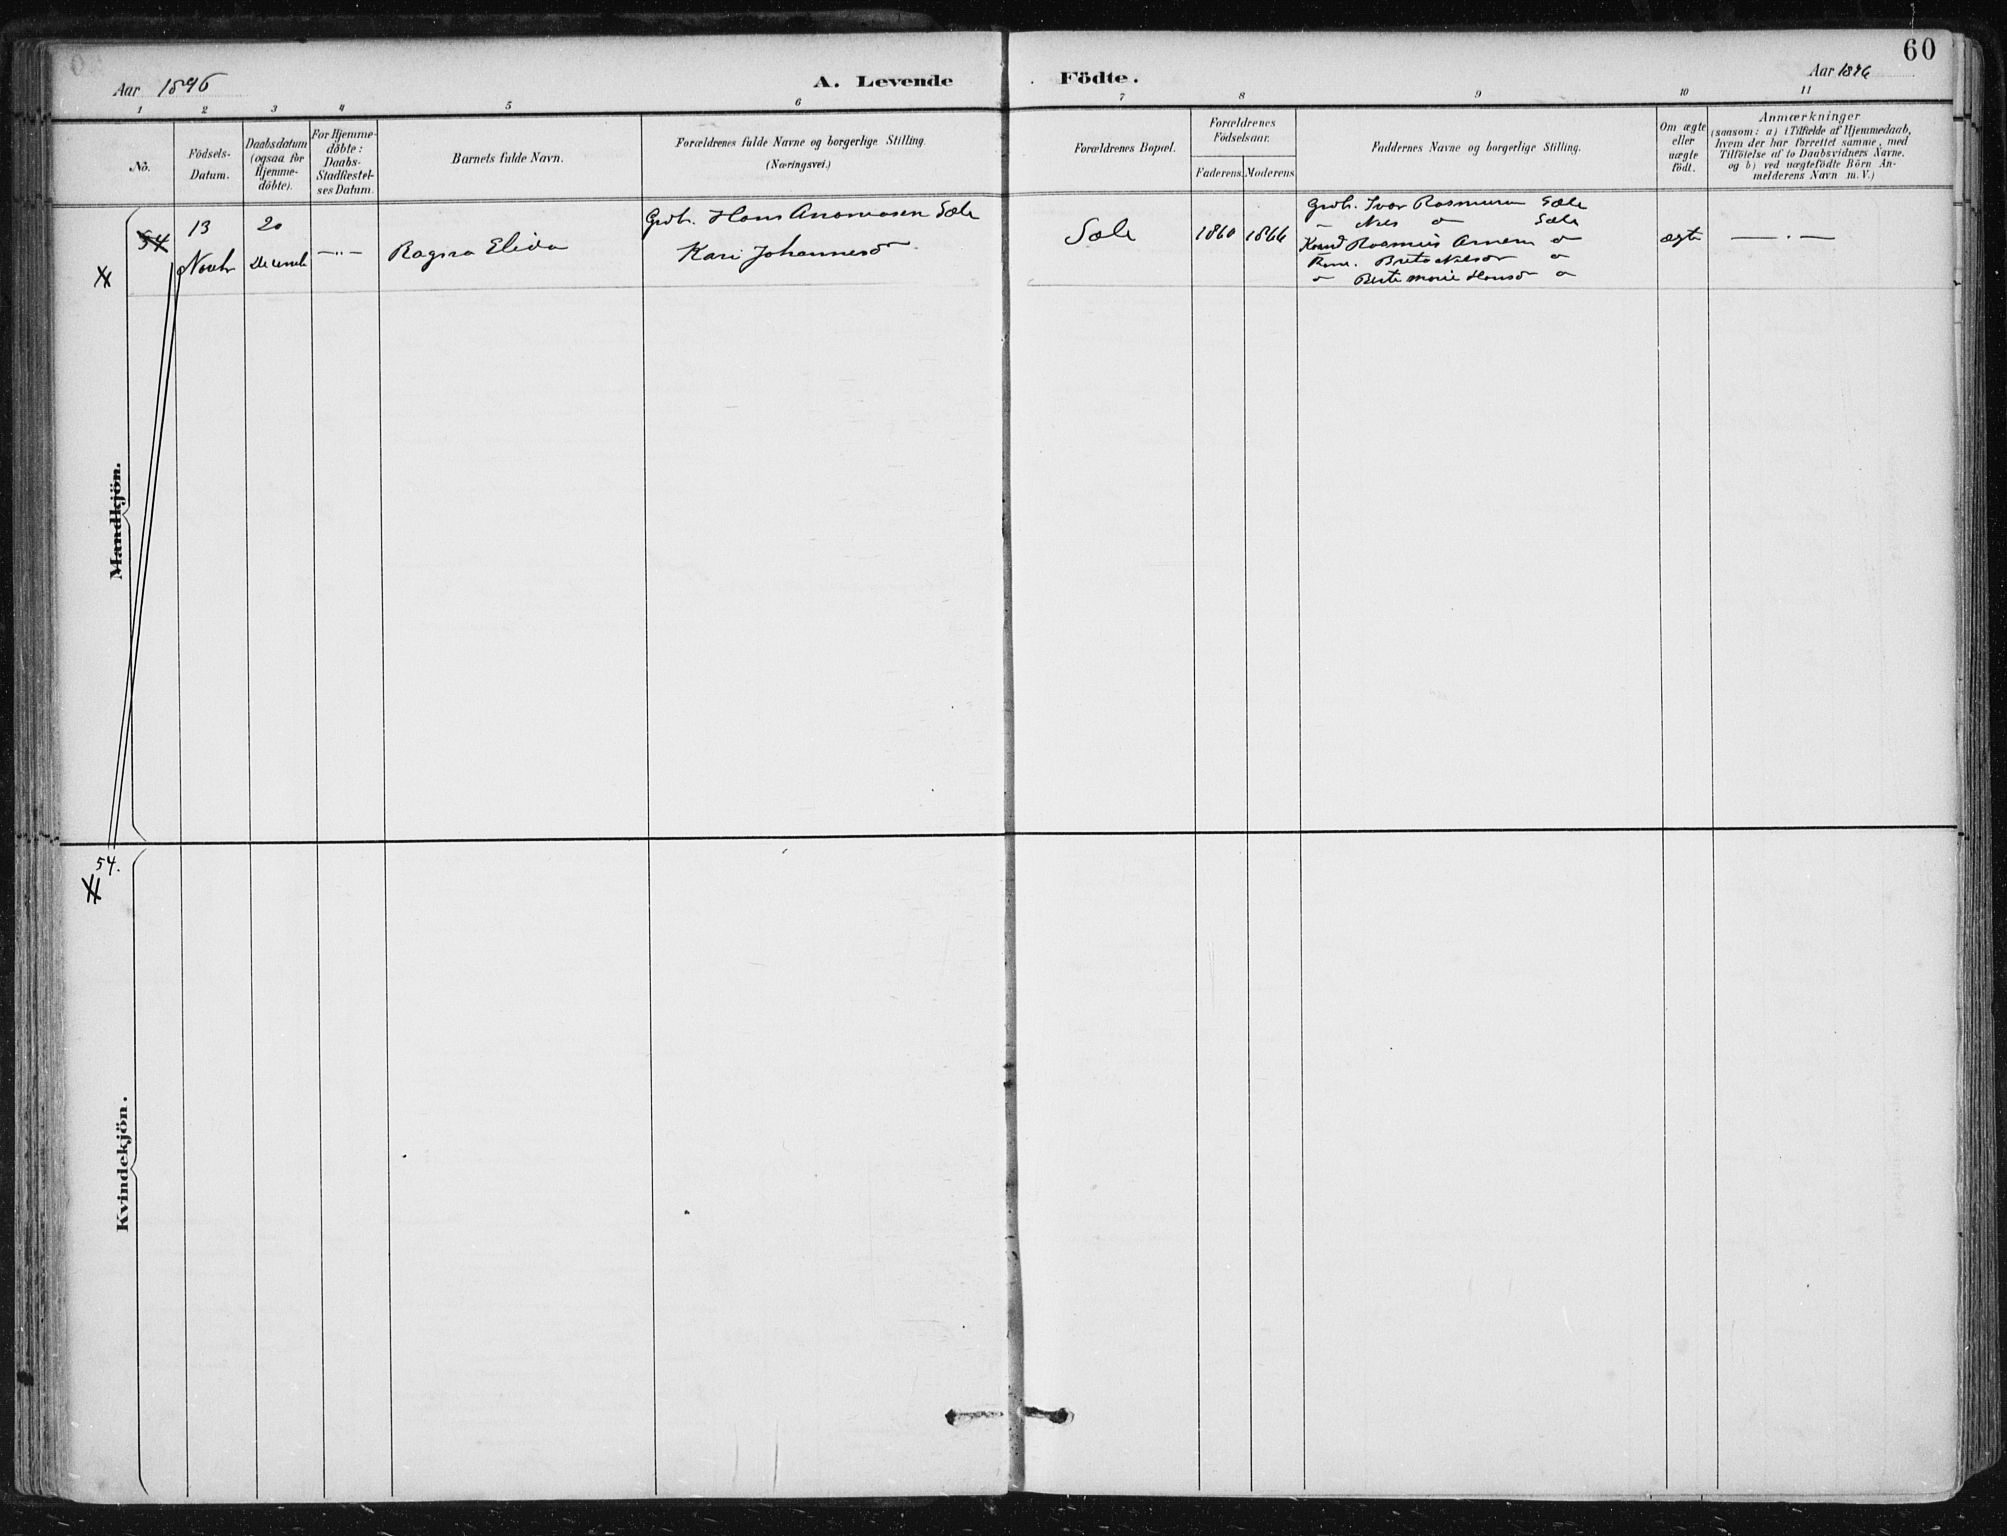 60
Aar 1896
A. Levende
Födte.
Aar 1896
1 2 3 4 5 6 7 8 9 10 11
No.
Födsels-
Datum.
Daabsdatum
(ogsaa for
Hjemme-
döbte).
For Hjemme-
döbte:
Daabs-
Stadfæstel-
ses Datum.
Barnets fulde Navn.
Forældrenes fulde Navne og borgerlige Stilling.
(Næringsvei.)
Forældrenes Bopæl.
Forældrenes
Födselsaar.
Faderens. Moderens.
Faddernes Navne og borgerlige Stilling.
Om ægte
eller
uægte
födt.
Anmærkninger
(saasom: a) i Tilfælde af Hjemmedaab,
hvem der har forrettet samme, med
Tilföielse af to Daabsvidners Navne.
og b) ved uægtefödte Börn An-
melderens Navn m. V.)
54
13
Novbr
20
Decemb
Ragna Elida
Grdb. Hans Andreasen Sæle
Kari Johannesd
Sæle
1860
1866
Grdb. Ivar Rasmussen Sæle
Nils Sæle
Rasmus
Berte Marie Hansd
ægte
Mandkjön.
54.
Kvindekjön.